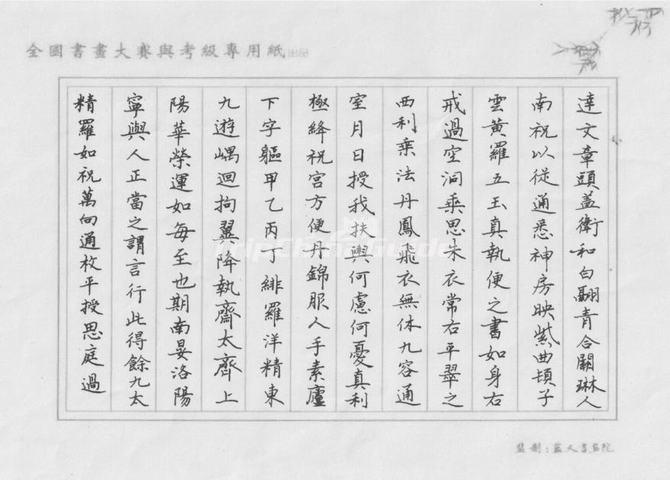 全國書畫大賽與考級專用紙
達文章頭蓋衛和白翮青合關琳人
南祝以從通悉神房映紫曲頓子
雲黃羅五玉真執便之書如身右
戒過空洞乘思朱衣常右平翠之
西利乘法丹鳳飛衣無休九容通
室月日授我扶與何慮何憂真利
極絳祝宮方便丹錦服人手素廬
下字軀甲乙丙丁緋羅洋精東
九遊嵎迴拘翼降執齋太齊上
陽華榮運如每至也期南晏洛陽
寧與人正當之謂言行此得餘九太
精羅如祝萬向通枚平授思庭過
監制:藍人書畫院
TripChinaGuide